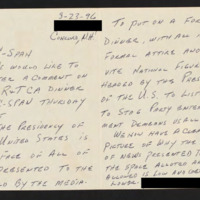 3-27-96
Concord, N.H.
C-SPAN
WOULD LIKE TO
ER A COMMENT ON
R&TCA DINNER
C-SPAN THURSDAY
T.
PRESIDENCY OF
UNITED STATES IS
OF ALL OF
PRESENTED TO THE
LD BY THE MEDIA.
TO PUT ON A FOR
DINNER, WITH ALL
FORMAL ATTIRE AND
VITE NATIONAL FIGUR
HEADED BY THE PRES
OF THE U.S. TO LIST
TO STAG PARTY ENTER
MENT DEMEANS US ALL
WE NOW HAVE A CLEAR
PICTURE OF WHY THE
OF NEWS PRESENTED IN
THE SPACE ALLOTED AND
ALLOWED IS LOW AND
LOWER.